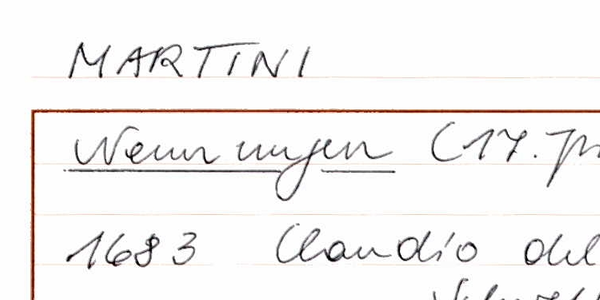 MARTINI
Nennungen (17.
1683 Claudio del